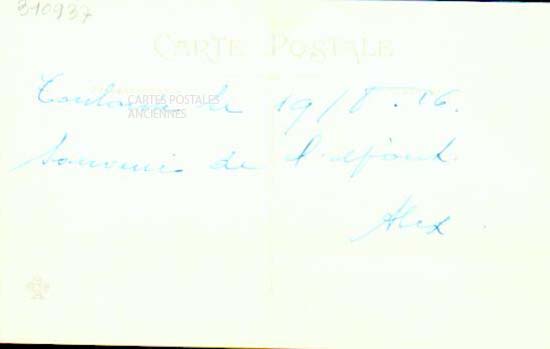 310937
CARTE POSTALE
CARTES POSTALES
ANCIENNES
Toulouse le 19/8.16.
Souvenir de
Alex